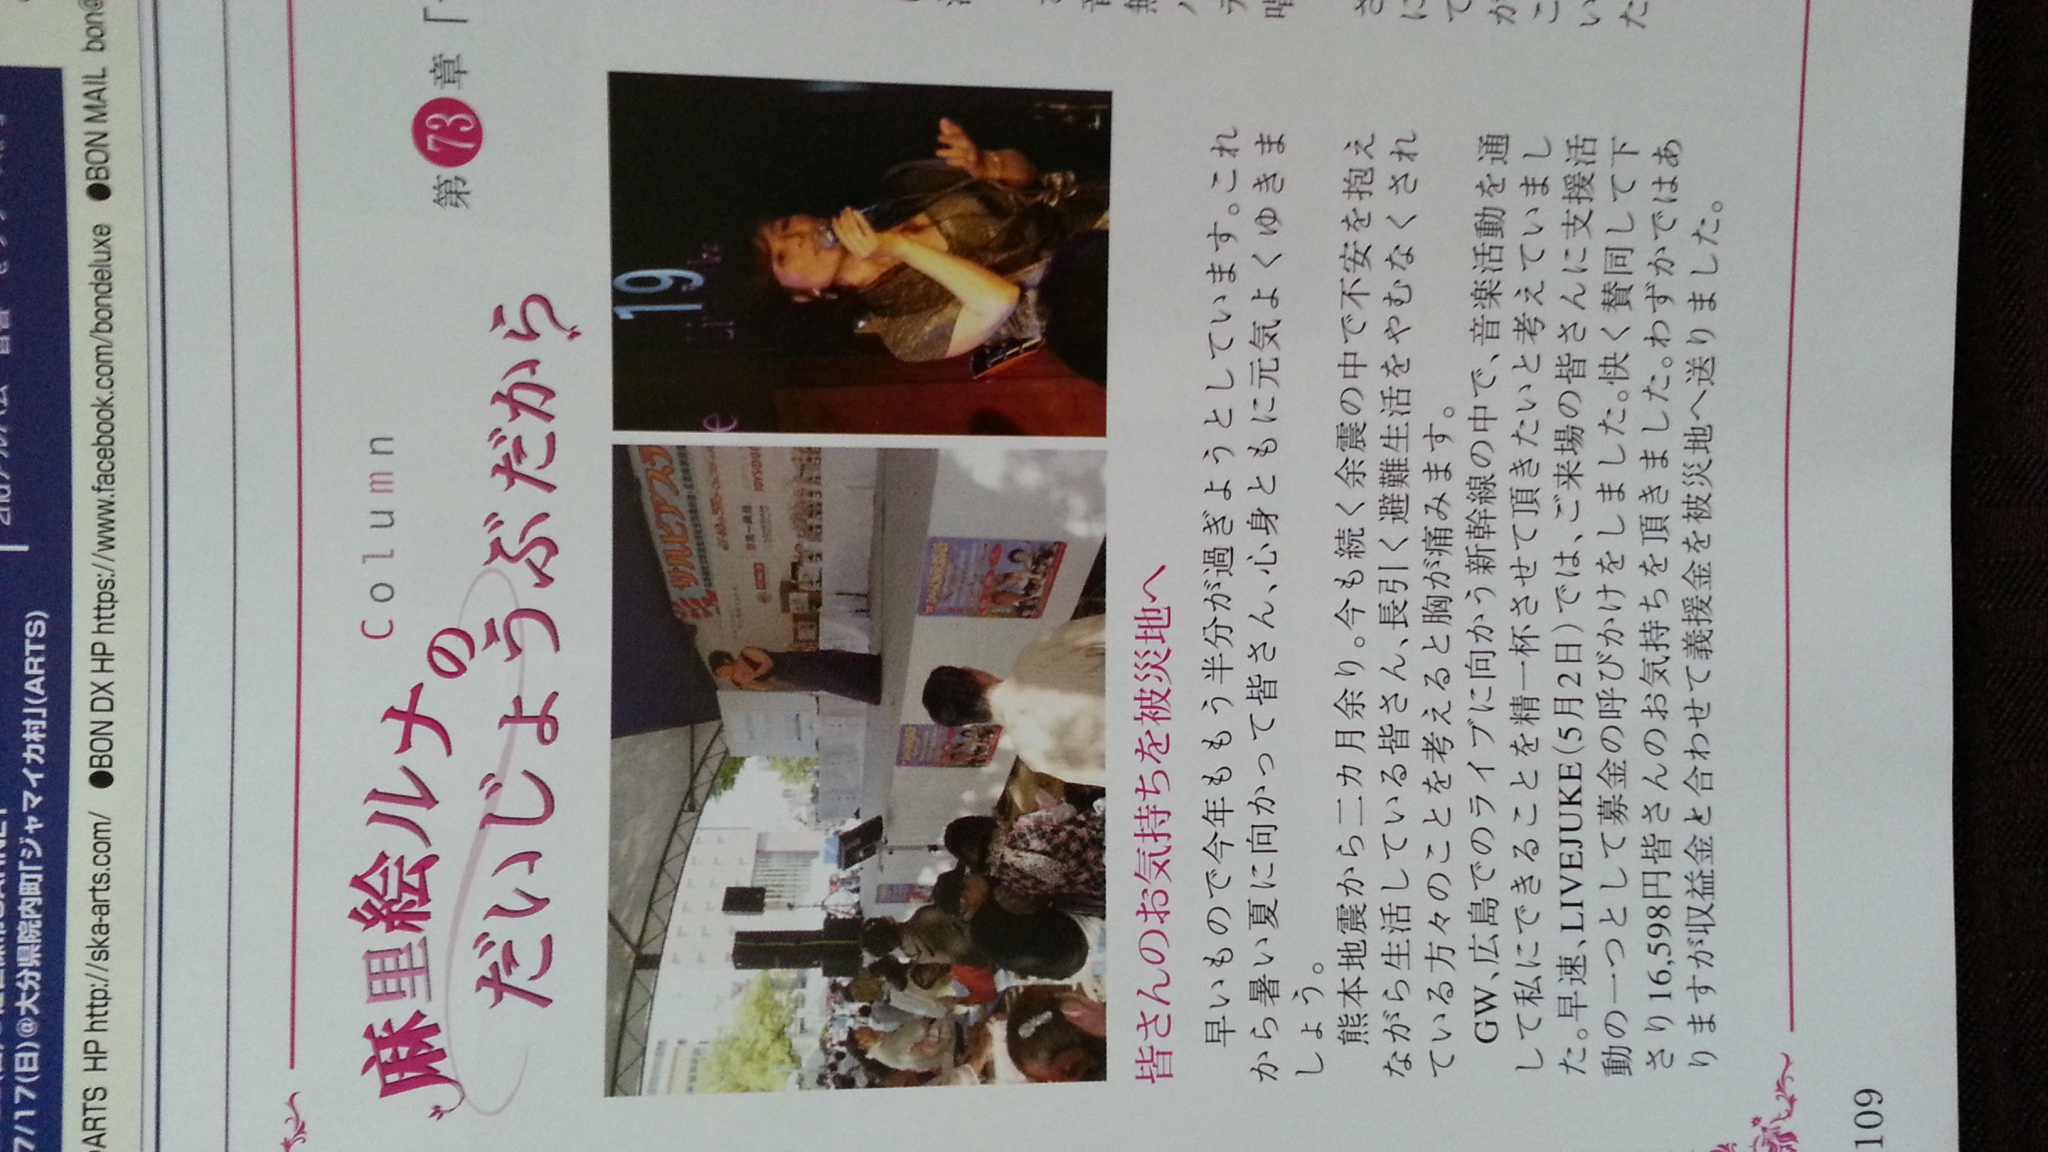 7/17(日)@大分県院内町「ジャマイカ村」(ARTS)
ARTS HP http://ska-arts.com/ ●BON DX HP https://www.facebook.com/bondeluxe ●BON MAIL bon@
Column
麻里絵ルナの
だいじょうぶだから
第73章「
19
皆さんのお気持ちを被災地へ
早いもので今年ももう半分が過ぎようとしています。これ
から暑い夏に向かって皆さん、心身ともに元気よくゆきま
しょう。
熊本地震から二カ月余り。今も続く余震の中で不安を抱え
ながら生活している皆さん、長引く避難生活をやむなくされ
ている方々のことを考えると胸が痛みます。
GW、広島でのライブに向かう新幹線の中で、音楽活動を通
して私にできることを精一杯させて頂きたいと考えていまし
た。早速、LIVEJUKE(5月2日)では、ご来場の皆さんに支援活
動の一つとして募金の呼びかけをしました。快く賛同して下
さり16,598円皆さんのお気持ちを頂きました。わずかではあ
りますが収益金と合わせて義援金を被災地へ送りました。
109